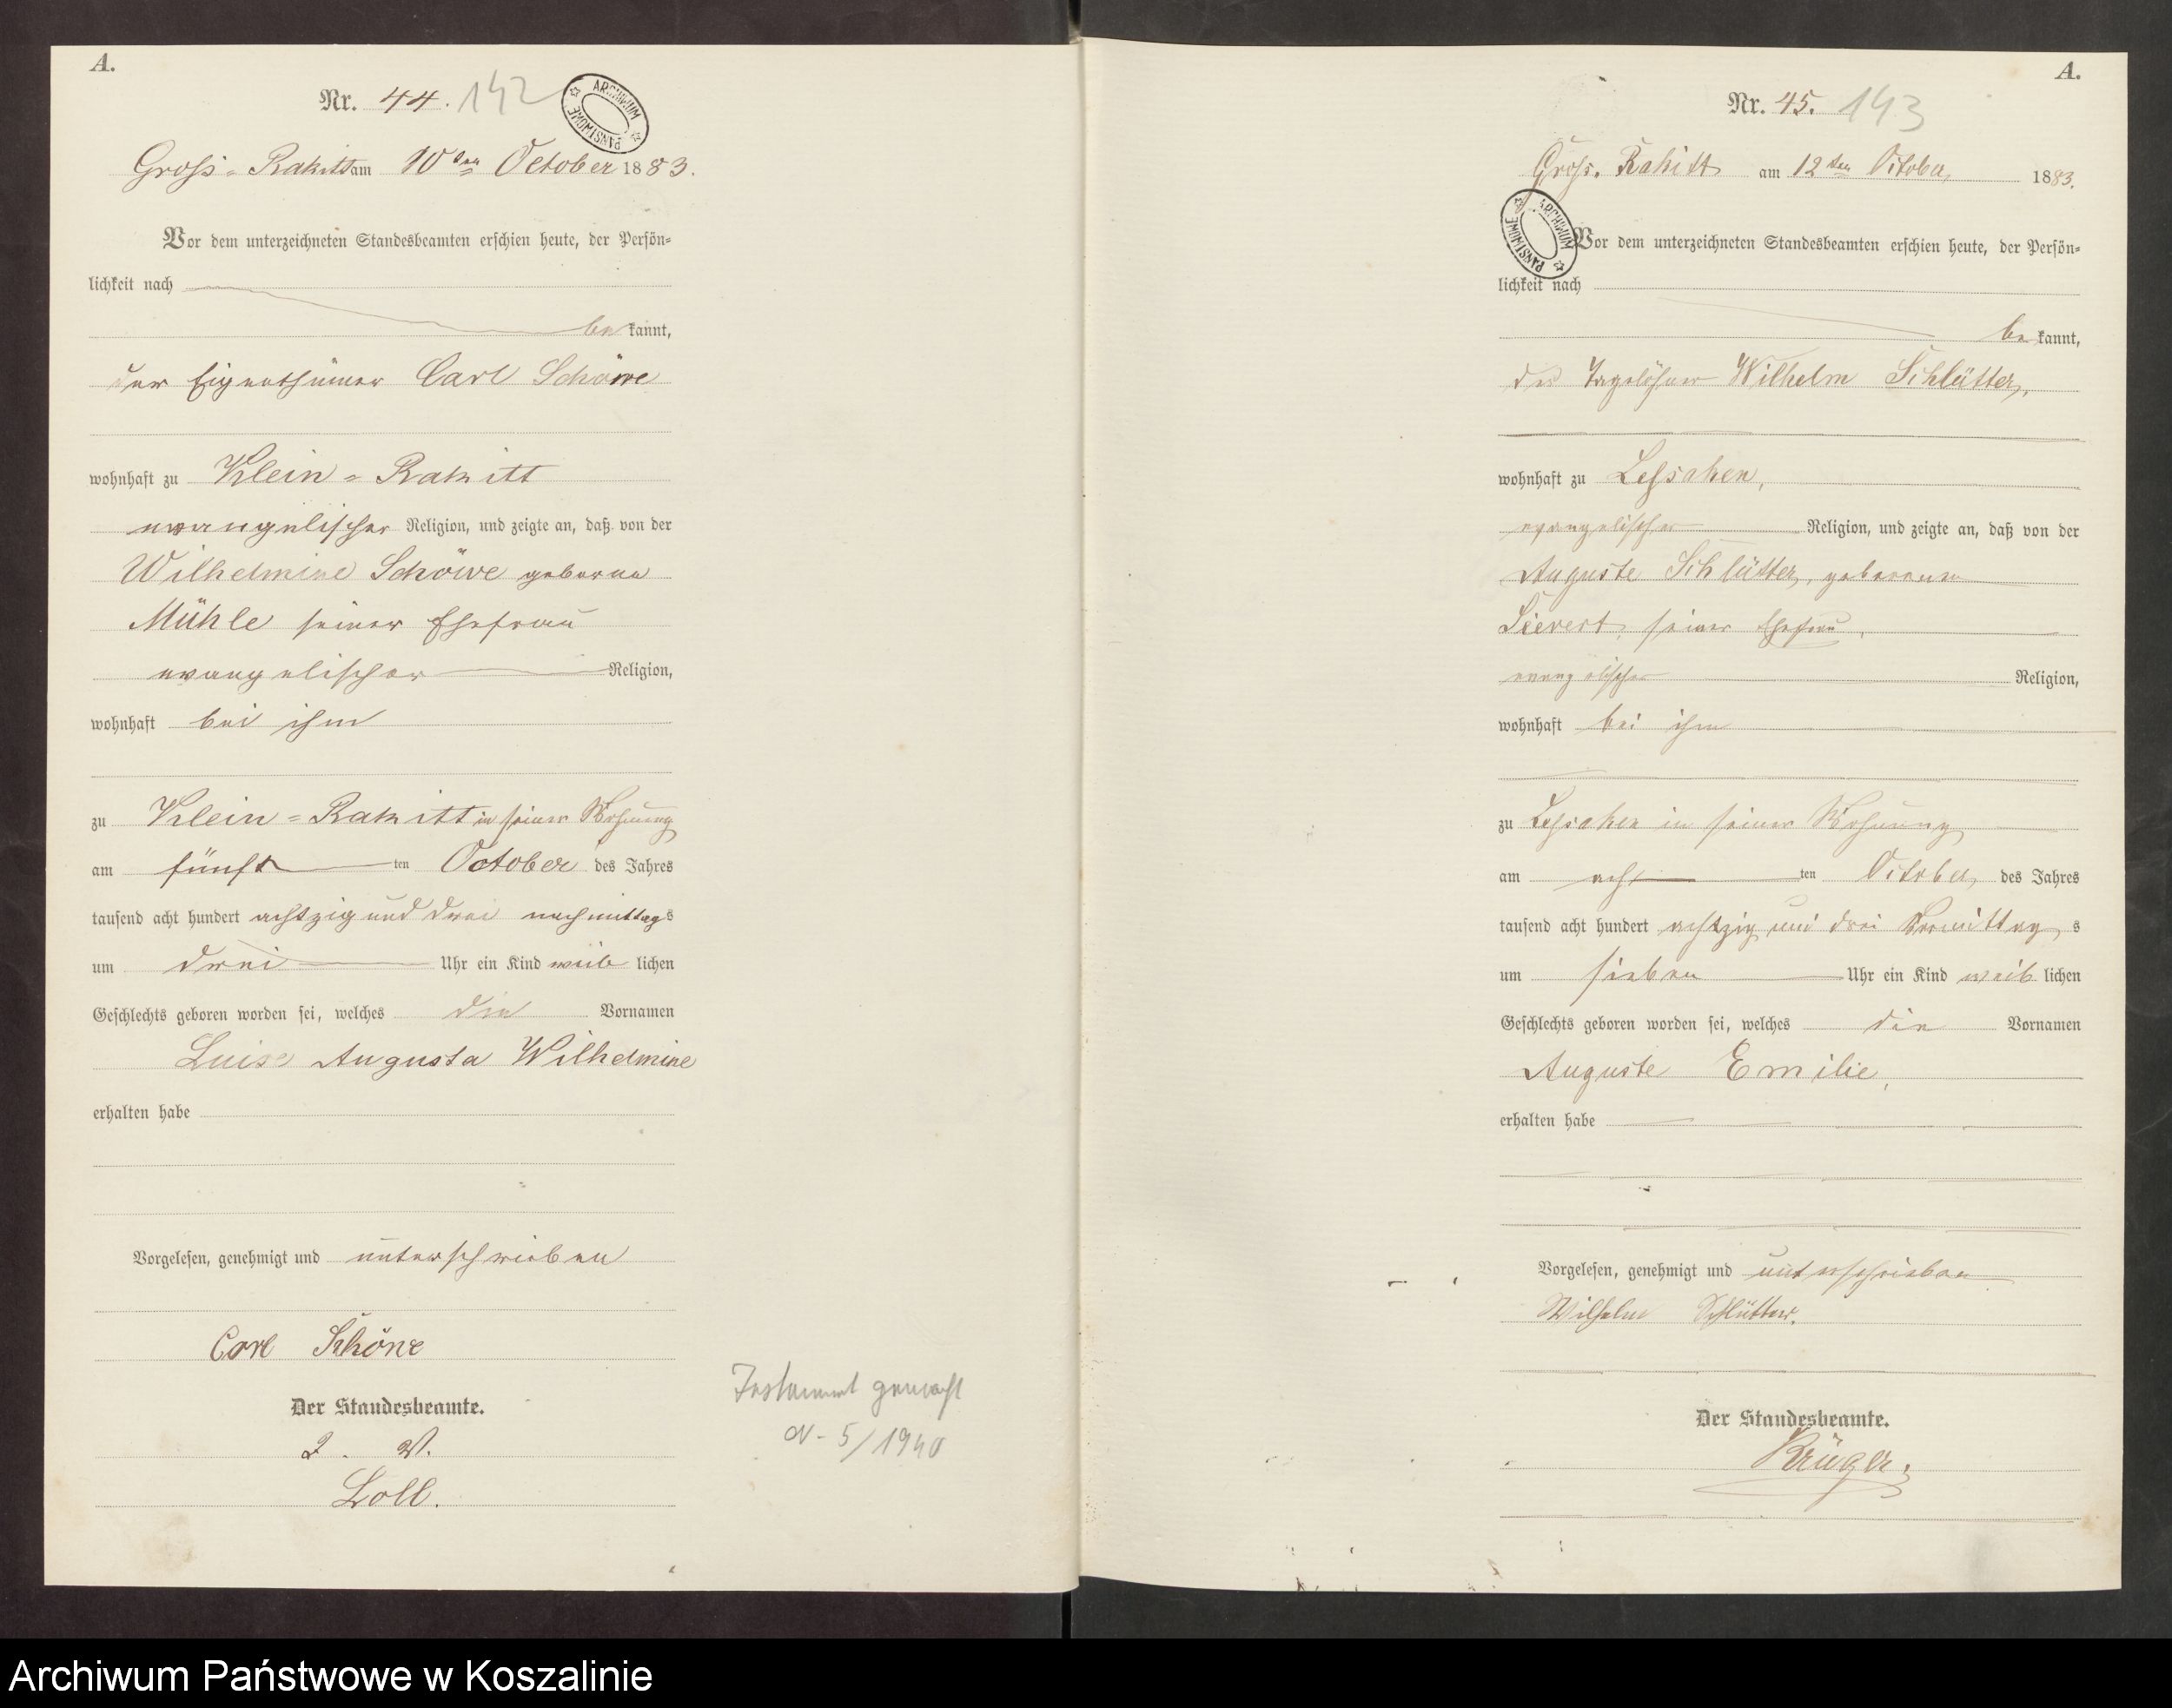 A.
Nr. 44. 142
ARCHIWUM PAŃSTWOWE
Gross-Rakitt am 10ten October 1883.
Vor dem unterzeichneten Standesbeamten erschien heute, der Persön-
lichkeit nach
bekannt,
der Eigenthümer Carl Schöwe
wohnhaft zu Klein-Rakitt
evangelischer Religion, und zeigte an, daß von der
Wilhelmine Schöwe geborne
Mühle seiner Ehefrau
evangelischer Religion,
wohnhaft bei ihm
zu Klein-Rakitt in seiner Wohnung
am fünften October des Jahres
tausend acht hundert achtzig und drei nachmittags
um drei Uhr ein Kind weiblichen
Geschlechts geboren worden sei, welches die Vornamen
Luise Augusta Wilhelmine
erhalten habe
Vorgelesen, genehmigt und unterschrieben
Carl Schöwe
Der Standesbeamte.
I. V.
Loll.
Testament gemacht
N-5/1940
A.
Nr. 45. 143
Gross-Rakitt am 12ten October 1883.
ARCHIWUM PAŃSTWOWE
Vor dem unterzeichneten Standesbeamten erschien heute, der Persön-
lichkeit nach
bekannt,
der Tagelöhner Wilhelm Schlütter,
wohnhaft zu Lessaken,
evangelischer Religion, und zeigte an, daß von der
Auguste Schlütter, geborenen
Sievert, seiner Ehefrau,
evangelischer Religion,
wohnhaft bei ihm
zu Lessaken in seiner Wohnung
am achten October des Jahres
tausend acht hundert achtzig und drei Vormittags
um sieben Uhr ein Kind weiblichen
Geschlechts geboren worden sei, welches die Vornamen
Auguste Emilie,
erhalten habe
Vorgelesen, genehmigt und unterschrieben
Wilhelm Schlütter.
Der Standesbeamte.
Krüger.
Archiwum Państwowe w Koszalinie